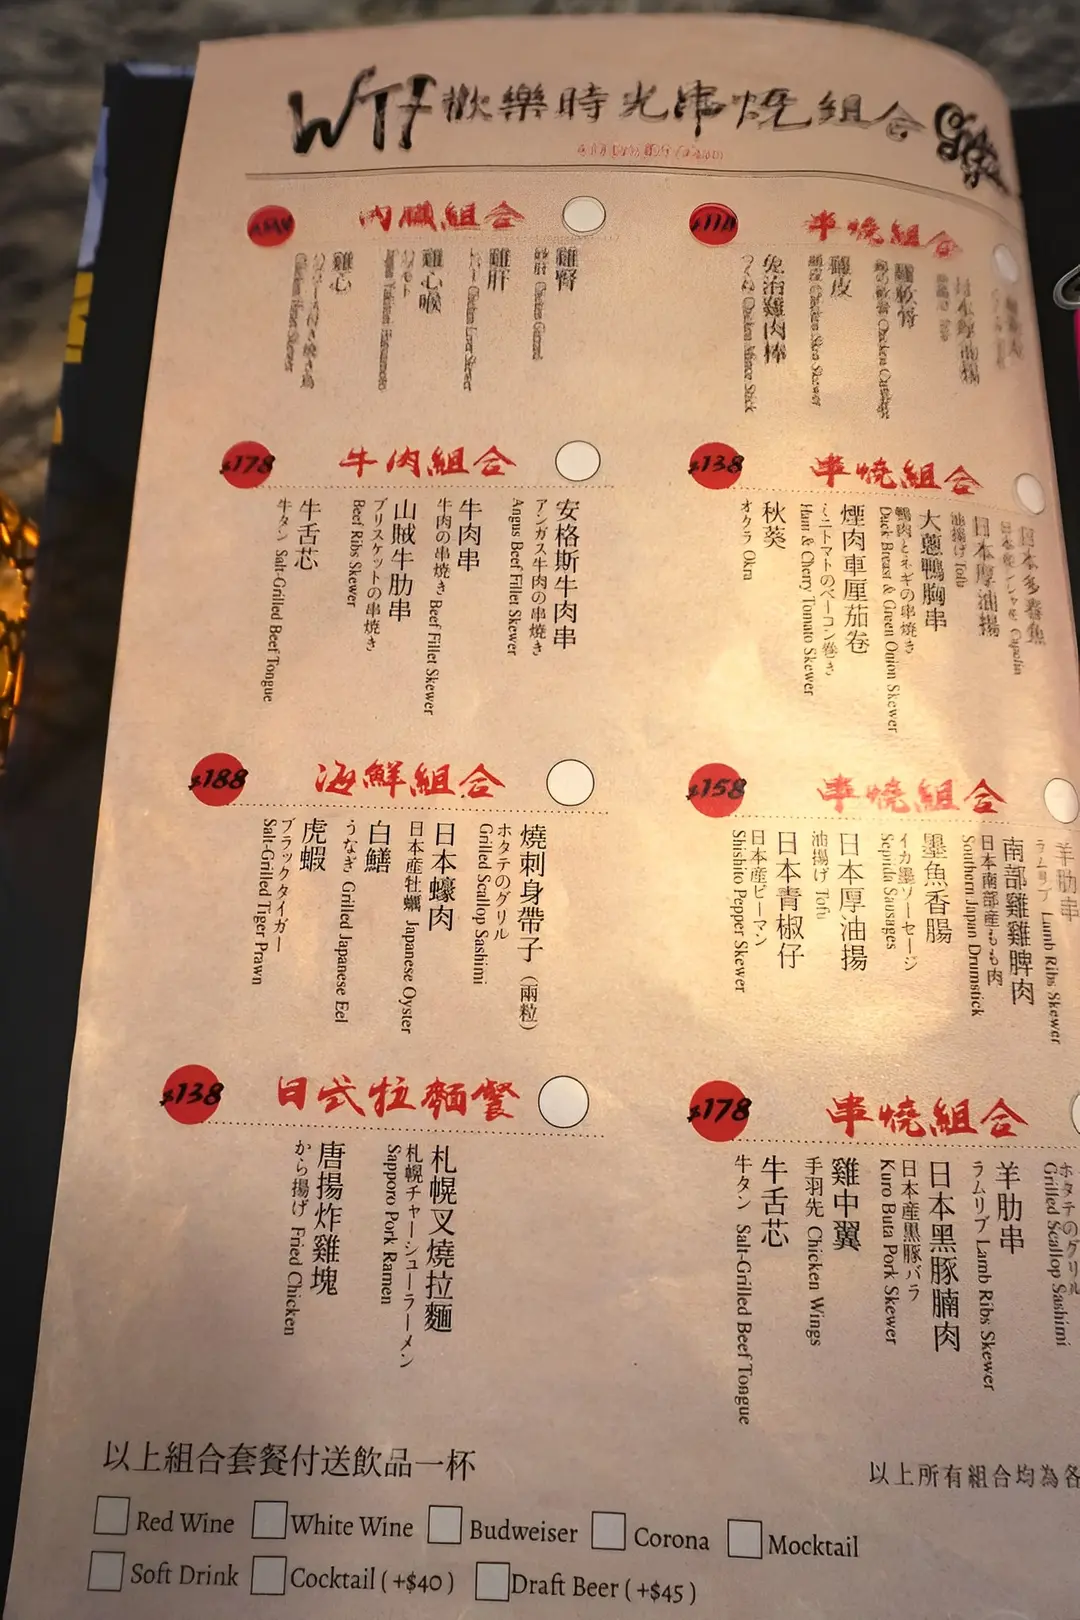 WTF 歡樂時光串燒組合
內臟組合
雞腎
砂肝 Chicken Gizzard
雞肝
Chicken Liver Skewer
雞心喉
雞心
Chicken Heart Skewer
串燒組合
雞軟骨
雞皮
Chicken Skin Skewer
免治雞肉棒
つくね Chicken Mince Stick
$178
牛肉組合
安格斯牛肉串
アンガス牛肉の串焼き
Angus Beef Fillet Skewer
牛肉串
牛肉の串焼き Beef Fillet Skewer
山賊牛肋串
ブリスケットの串焼き
Beef Ribs Skewer
牛舌芯
牛タン Salt-Grilled Beef Tongue
$138
串燒組合
日本多春魚
日本厚油揚
油揚げ Tofu
大蔥鴨胸串
鴨肉とネギの串焼き
Duck Breast & Green Onion Skewer
煙肉車厘茄卷
ミニトマトのベーコン巻き
Ham & Cherry Tomato Skewer
秋葵
オクラ Okra
$188
海鮮組合
燒刺身帶子（兩粒）
ホタテのグリル
Grilled Scallop Sashimi
日本蠔肉
日本産牡蠣 Japanese Oyster
白鱔
うなぎ Grilled Japanese Eel
虎蝦
ブラックタイガー
Salt-Grilled Tiger Prawn
$158
串燒組合
羊肋串
ラムリブ Lamb Ribs Skewer
南部雞雞脾肉
日本南部産もも肉
Southern Japan Drumstick
墨魚香腸
イカ墨ソーセージ
Sepiida Sausages
日本厚油揚
油揚げ Tofu
日本青椒仔
日本産ピーマン
Shishito Pepper Skewer
$138
日式拉麵餐
札幌叉燒拉麵
札幌チャーシューラーメン
Sapporo Pork Ramen
唐揚炸雞塊
から揚げ Fried Chicken
$178
串燒組合
ホタテのグリル
Grilled Scallop Sashimi
羊肋串
ラムリブ Lamb Ribs Skewer
日本黑豚腩肉
日本産黒豚バラ
Kuro Buta Pork Skewer
雞中翼
手羽先 Chicken Wings
牛舌芯
牛タン Salt-Grilled Beef Tongue
以上組合套餐付送飲品一杯
以上所有組合均為各
Red Wine White Wine Budweiser Corona Mocktail
Soft Drink Cocktail ( +$40 ) Draft Beer ( +$45 )